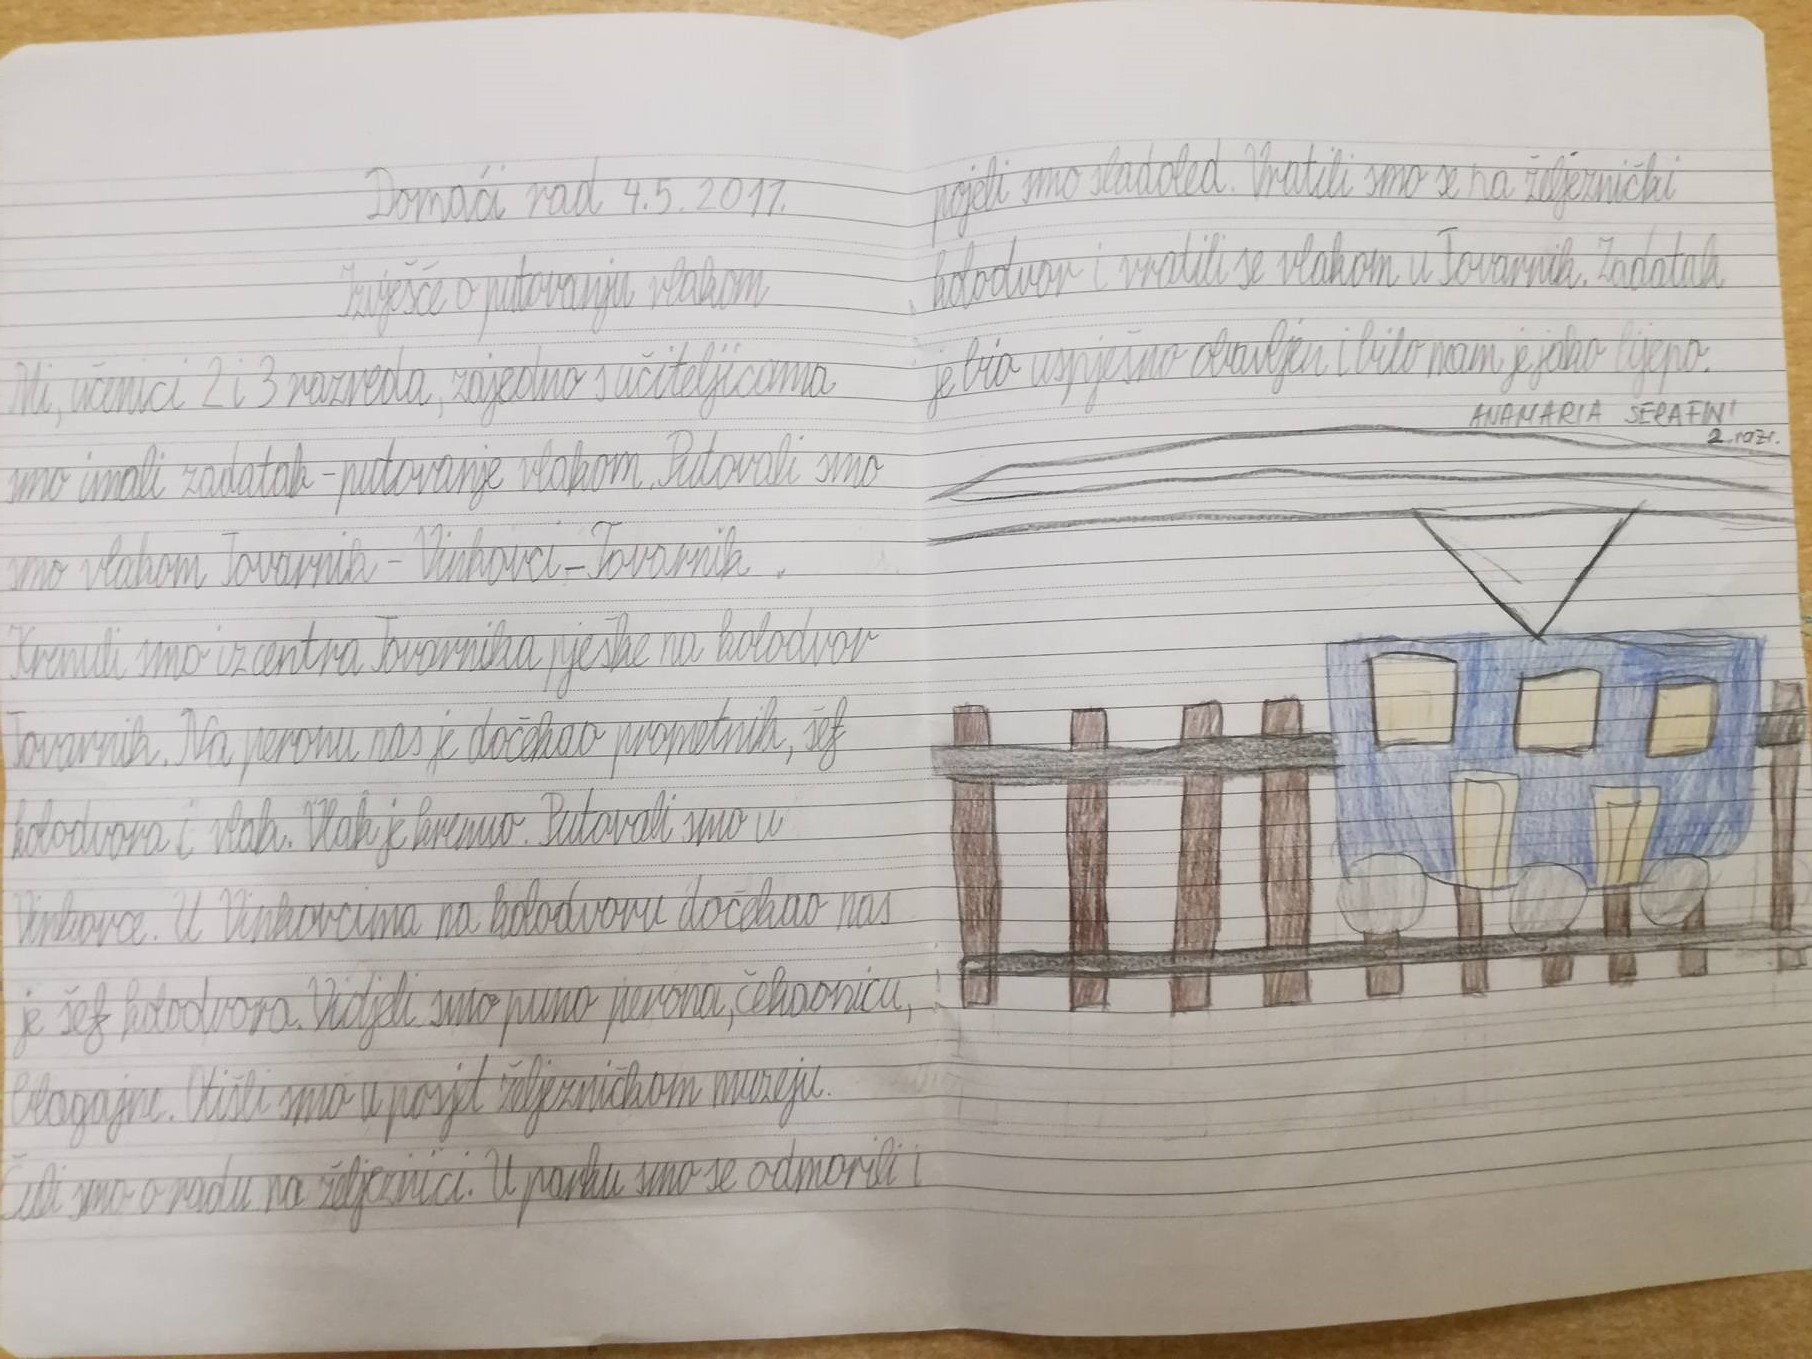 Domaći rad 4.5.2017.
Izvješće o putovanju vlakom
Mi, učenici 2 i 3 razreda, zajedno s učiteljicama
smo imali zadatak - putovanje vlakom. Putovali smo
smo vlakom Tovarnik - Vinkovci - Tovarnik.
Krenuli smo iz centra Tovarnika pješke na kolodvor
Tovarnik. Na peronu nas je dočekao prometnik, šef
kolodvora i vlak. Vlak je krenuo. Putovali smo u
Vinkovce. U Vinkovcima na kolodvoru dočekao nas
je šef kolodvora. Vidjeli smo puno perona, čekaonicu,
blagajne. Otišli smo u posjet željezničkom muzeju.
Čuli smo o radu na željeznici. U parku smo se odmorili i
pojeli smo sladoled. Vratili smo se na željeznički
kolodvor i vratili se vlakom u Tovarnik. Zadatak
je bio uspješno obavljen i bilo nam je jako lijepo.
ANAMARIA SERAFINI
2. razr.